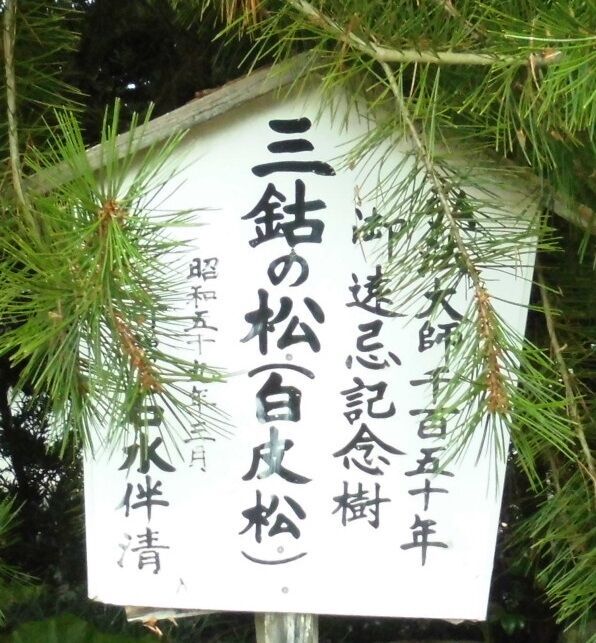 大師千百五十年
御遠忌記念樹
三鈷の松(白皮松)
昭和五十九年三月
白水伴清